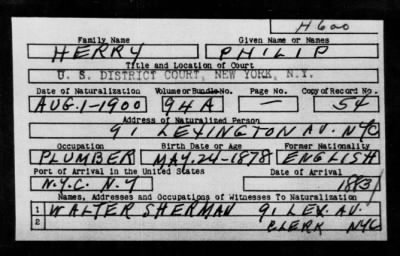 H600
Family Name Given Name or Names
HERRY PHILIP
Title and Location of Court
U. S. DISTRICT COURT, NEW YORK, N.Y.
Date of Naturalization Volume or Bundle No. Page No. Copy of Record No.
AUG.1-1900 94A — 54
Address of Naturalized Person
91 LEXINGTON AV. NYC
Occupation Birth Date or Age Former Nationality
PLUMBER MAY.24-1878 ENGLISH
Port of Arrival in the United States Date of Arrival
N.Y.C. N.Y
Names, Addresses and Occupations of Witnesses To Naturalization
1 WALTER SHERMAN 91 LEX. AV.
2 CLERK NYC